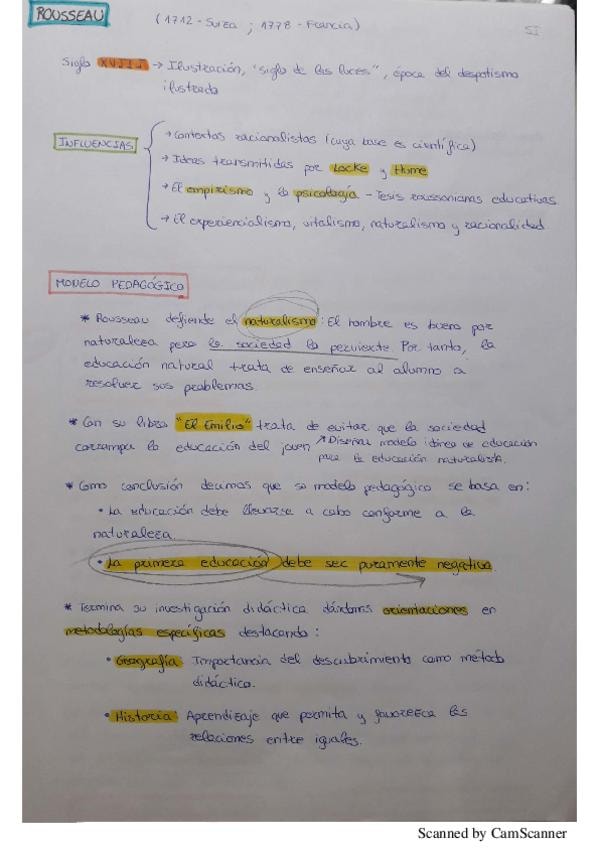 ROUSSEAU (1712 - Suiza ; 1778 - Francia)
Siglo XVIII → Ilustración, "siglo de las luces", época del despotismo
ilustrado
INFLUENCIAS
→ Contextos racionalistas (cuya base es científica)
→ Ideas transmitidas por Locke y Hume
→ El empirismo y la psicología - Tesis roussonianas educativas.
→ El experiencialismo, vitalismo, naturalismo y racionalidad.
MODELO PEDAGÓGICO
* Rousseau defiende el naturalismo: El hombre es bueno por
naturaleza pero la sociedad lo pervierte. Por tanto, la
educación natural trata de enseñar al alumno a
resolver sus problemas.
* Con su libro "El Emilio" trata de evitar que la sociedad
corrompa la educación del joven ↗ Diseñar modelo idóneo de educación
para la educación naturalista.
* Como conclusión decimos que su modelo pedagógico se basa en:
• La educación debe llevarse a cabo conforme a la
naturaleza.
• La primera educación debe ser puramente negativa.
* Termina su investigación didáctica dándonos orientaciones en
metodologías específicas destacando:
• Geografía: Importancia del descubrimiento como método
didáctico.
• Historia: Aprendizaje que permita y favorezca las
relaciones entre iguales.
Scanned by CamScanner